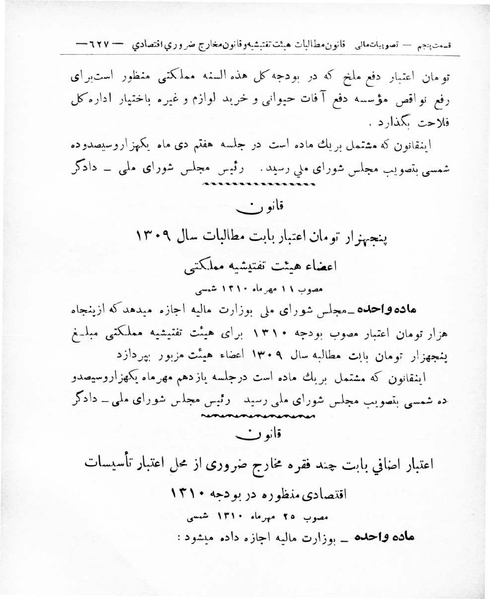 قسمت پنجم — تصویبات مالی قانون مطالبات هیئت تفتیشیه و قانون مخارج ضروری اقتصادی — ۶۲۷ —
تومان اعتبار دفع ملخ که در بودجه کل هذه السنه مملکتی منظور است برای
رفع نواقص مؤسسه دفع آفات حیوانی و خرید لوازم و غیره باختیار اداره کل
فلاحت بگذارد .
اینقانون که مشتمل بریك ماده است در جلسه هفتم دی ماه یکهزار وسیصد وده
شمسی بتصویب مجلس شورای ملی رسید. رئیس مجلس شورای ملی ــ دادگر
قانون
پنجهزار تومان اعتبار بابت مطالبات سال ۱۳۰۹
اعضاء هیئت تفتیشیه مملکتی
مصوب ۱۱ مهرماه ۱۳۱۰ شمسی
ماده واحده ــ مجلس شورای ملی بوزارت مالیه اجازه میدهد که از پنجاه
هزار تومان اعتبار مصوب بودجه ۱۳۱۰ برای هیئت تفتیشیه مملکتی مبلغ
پنجهزار تومان بابت مطالبه سال ۱۳۰۹ اعضاء هیئت مزبور بپردازد
اینقانون که مشتمل بریك ماده است درجلسه یازدهم مهرماه یکهزاروسیصدو
ده شمسی بتصویب مجلس شورای ملی رسید رئیس مجلس شورای ملی ــ دادگر
قانون
اعتبار اضافی بابت چند فقره مخارج ضروری از محل اعتبار تأسیسات
اقتصادی منظوره در بودجه ۱۳۱۰
مصوب ۲۵ مهرماه ۱۳۱۰ شمسی
ماده واحده ــ بوزارت مالیه اجازه داده میشود :